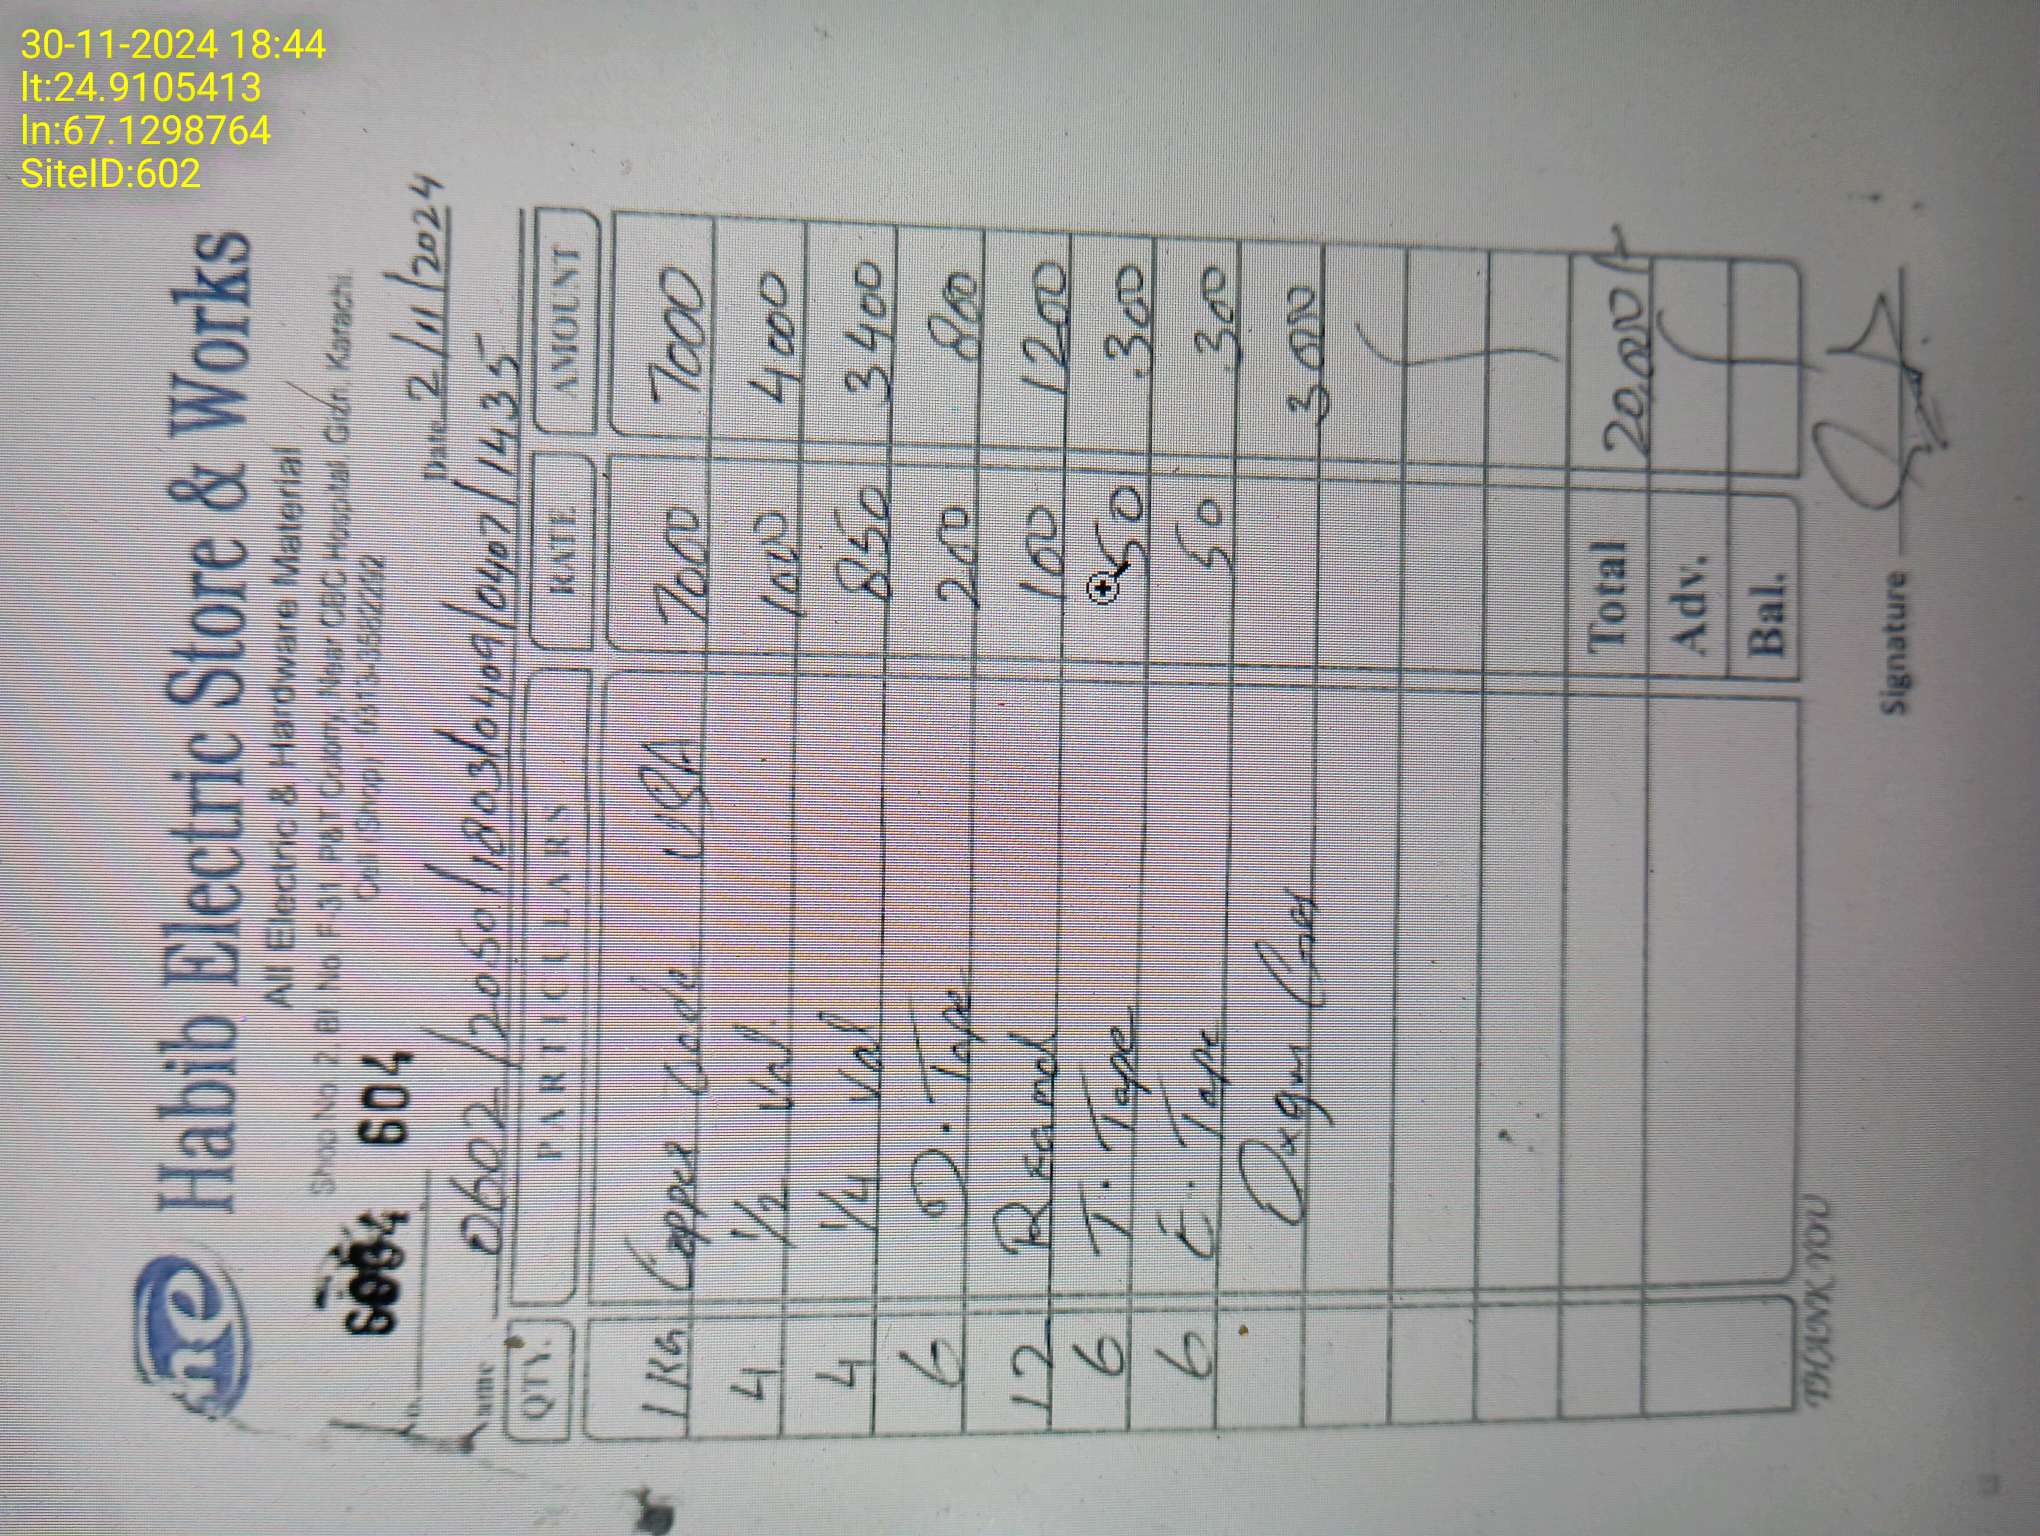 30-11-2024 18:44
lt:24.9105413
ln:67.1298764
SiteID:602
Habib Electric Store & Works
All Electric & Hardware Material
Shop No. 2, Bl. No. F-31, P&T Colony, Near CBC Hospital, Gizri, Karachi.
Cell Shop:
604
Date 2/11/2024
Name 0602/2050/1803/0409/0407/1435
QTY. PARTICULARS RATE AMOUNT
1 KG Copper USA 7000 7000
4 1/2 Val 1000 4000
4 1/4 Val 850 3400
6 D. Tape 200 800
12 100 1200
6 T. Tape 50 300
6 E. Tape 50 300
3000
Total 20,000/-
Adv.
Bal.
THANK YOU
Signature